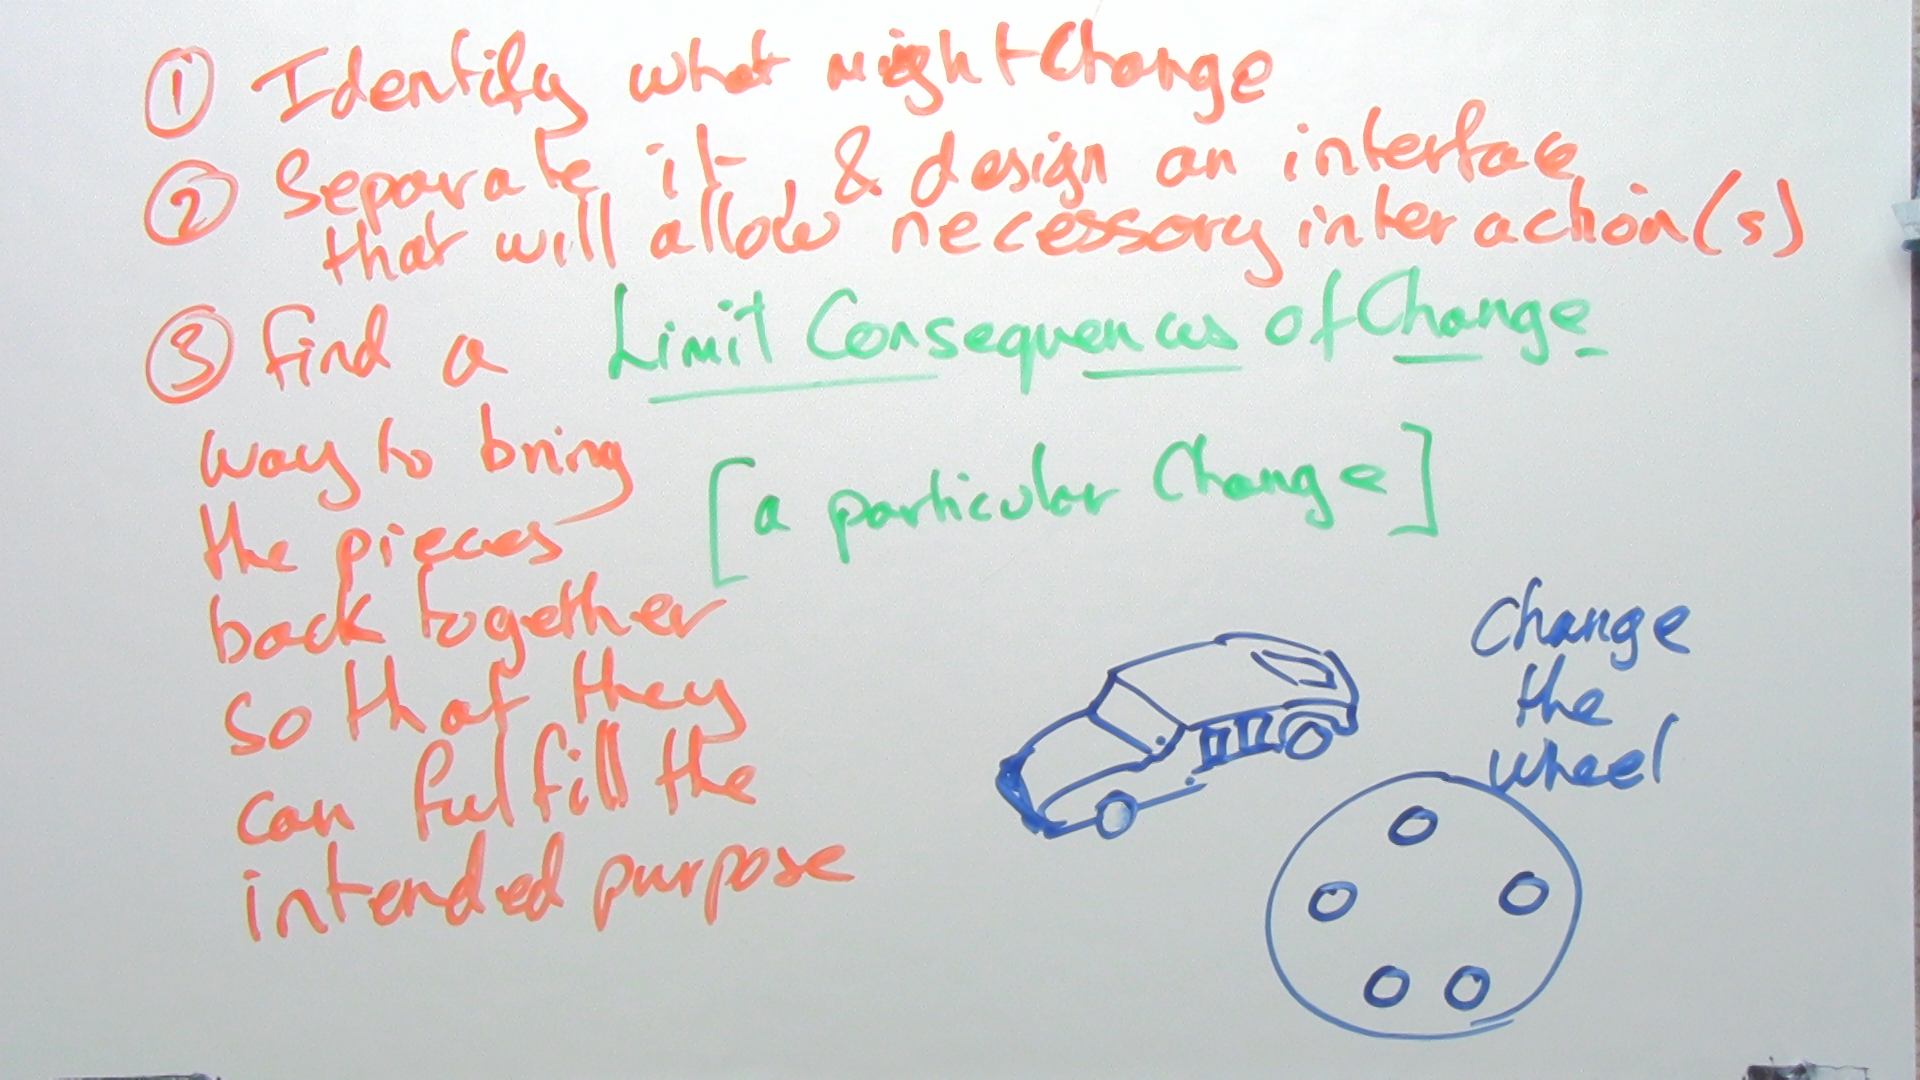 ① Identify what might Change
② Separate it, & design an interface
that will allow necessary interaction(s)
③ find a
way to bring
the pieces
back together
so that they
can fulfill the
intended purpose
Limit Consequences of Change
[a particular Change]
Change
the
wheel